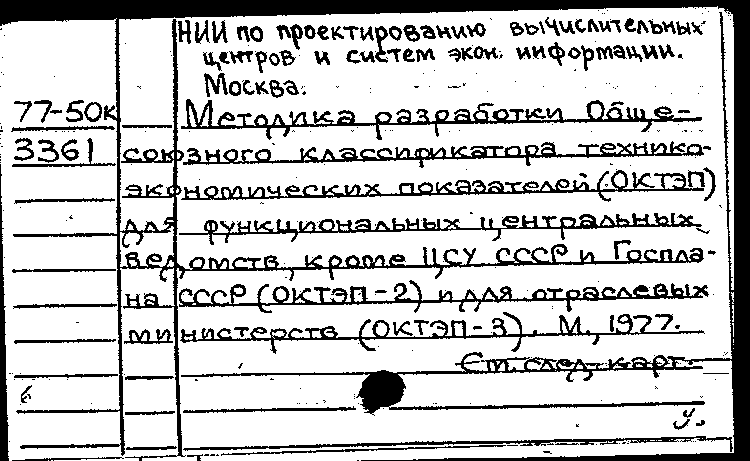 НИИ по проектированию вычислительных
центров и систем экон. информации.
Москва.
77-50к Методика разработки Обще-
3361 союзного классификатора технико-
экономических показателей (ОКТЭП)
для функциональных центральных
ведомств, кроме ЦСУ СССР и Госпла-
на СССР (ОКТЭП-2) и для отраслевых
министерств (ОКТЭП-3). М., 1977.
См. след. карт.
б
У.